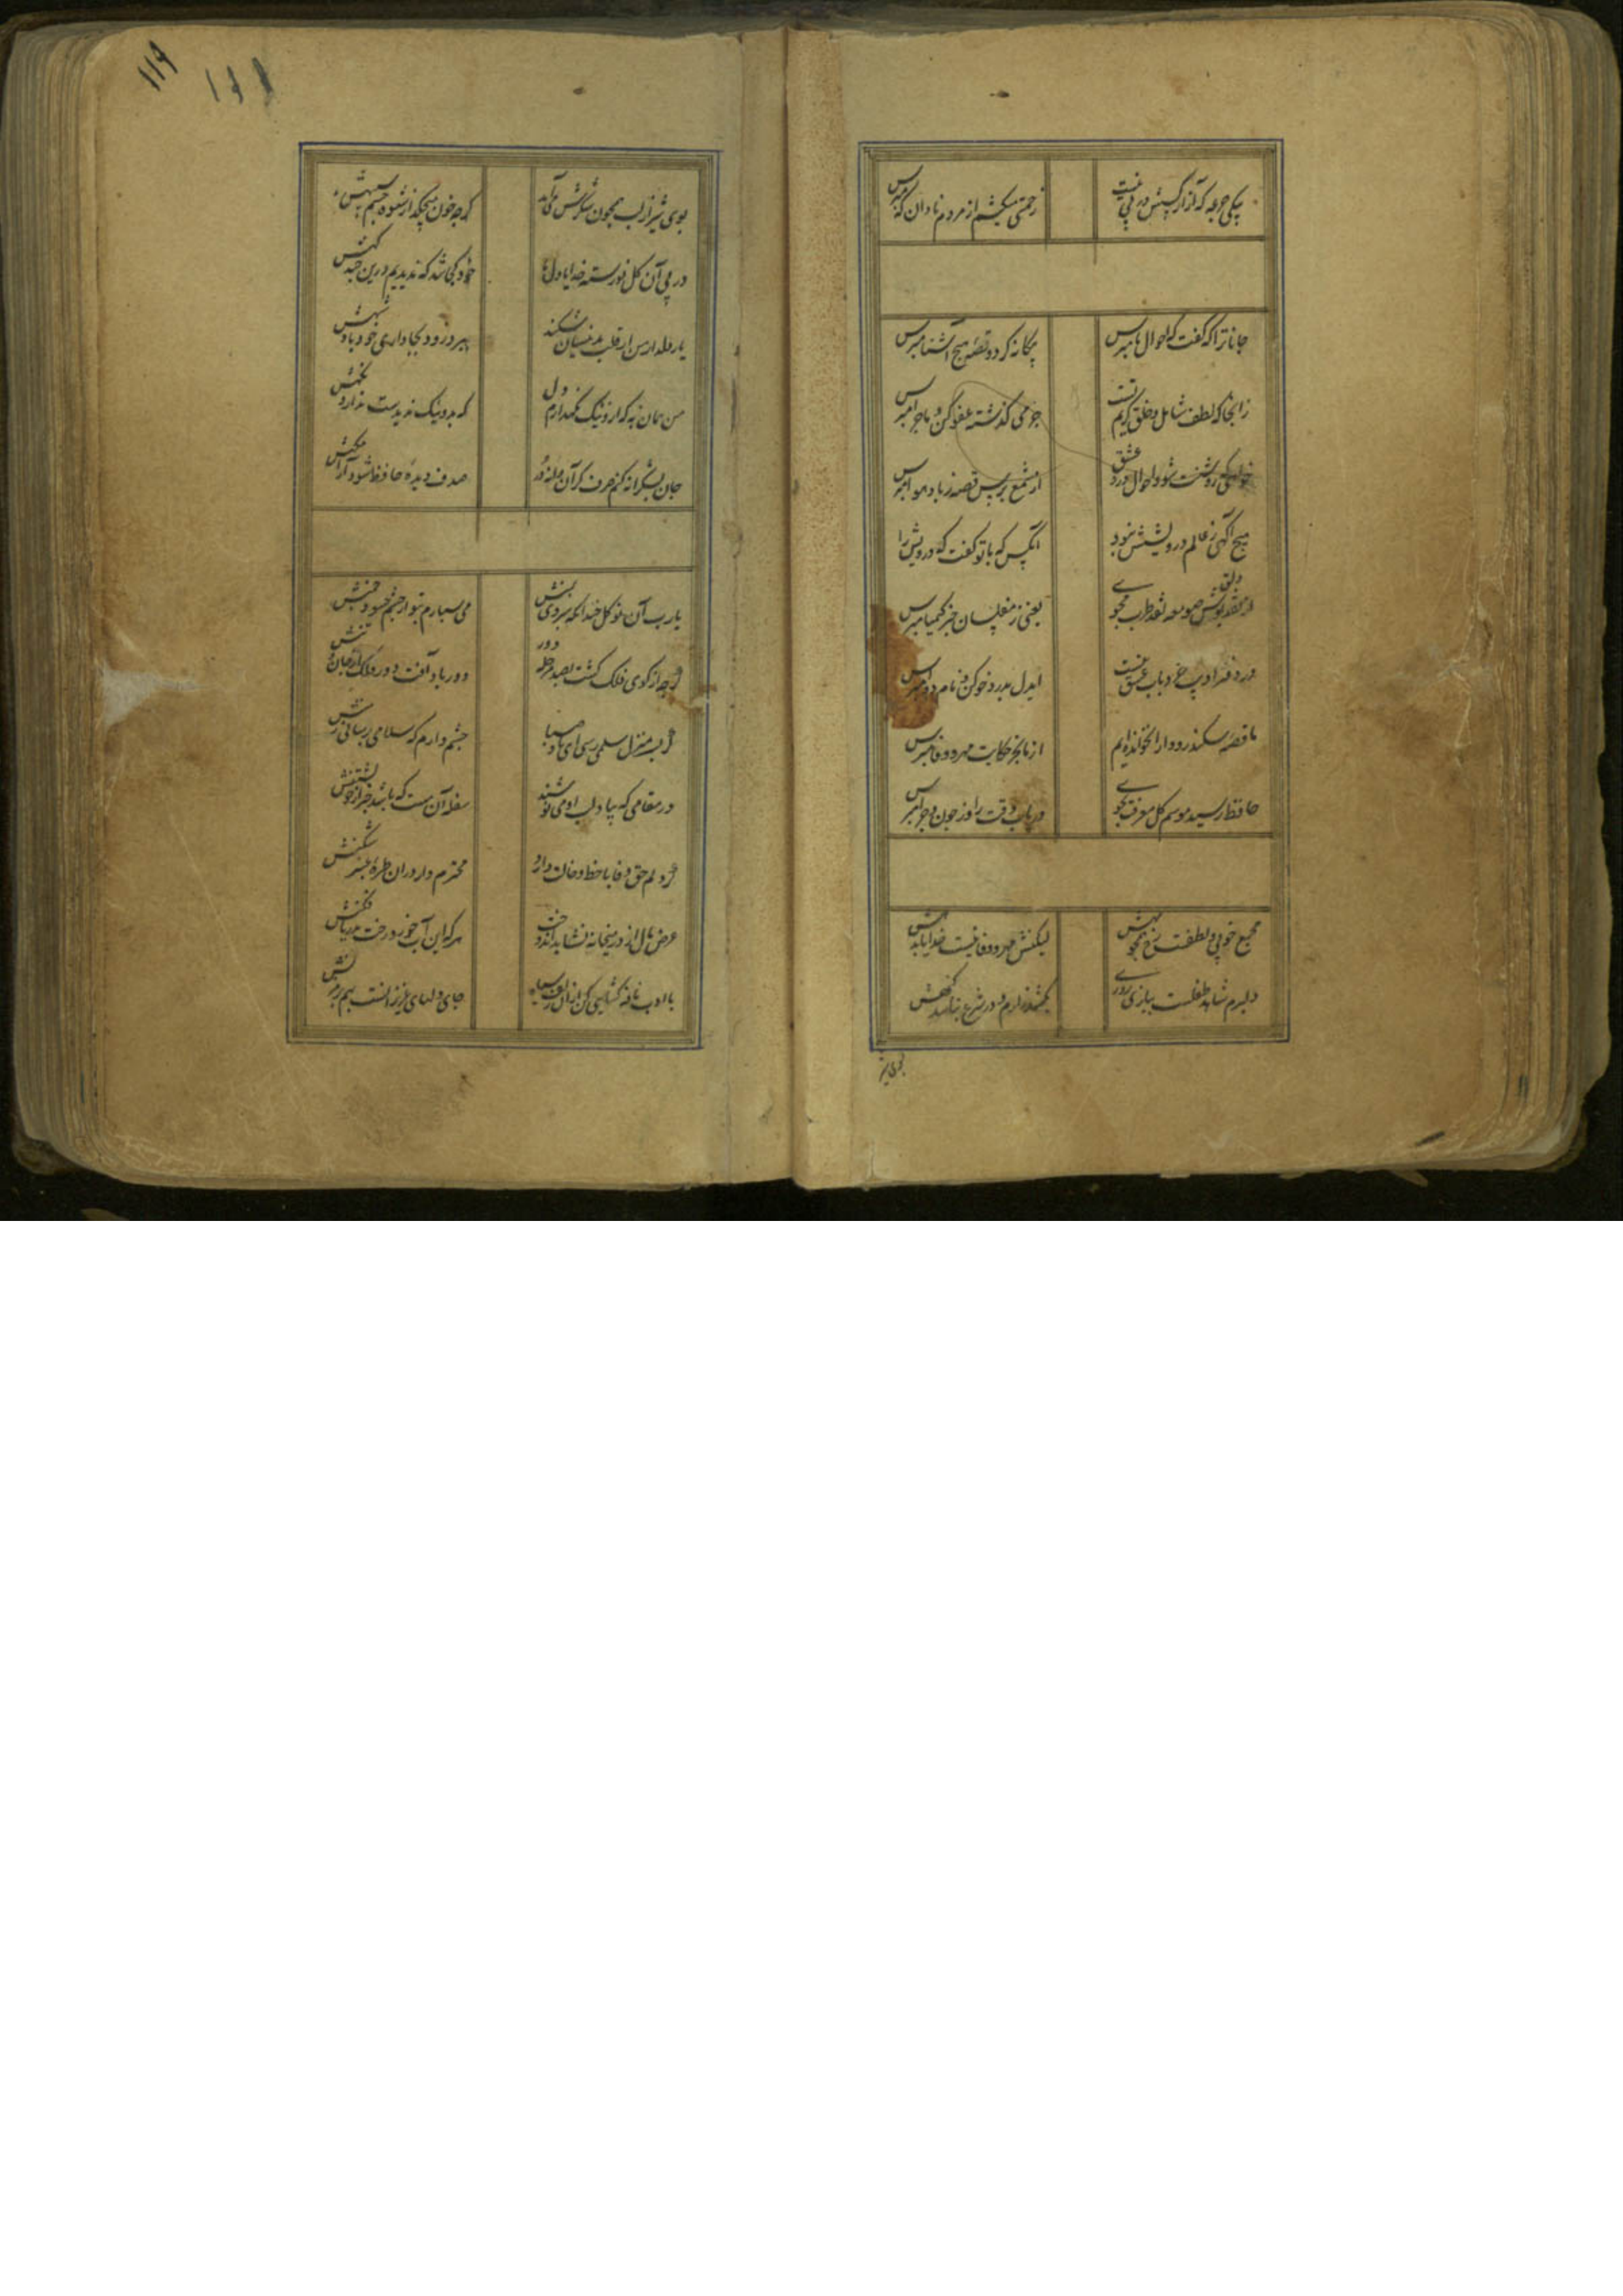 بیکی جرعه که آزار کسش در پی نیست
زحمتی میکشم از مردم نادان که مپرس
جانا ترا که گفت که احوال ما مپرس
بیگانه گرد و قصه هیچ آشنا مپرس
زانجا که لطف شامل و خلق کریم تست
جرمی گذشته عفو کن و ماجرا مپرس
خواهی که روشنت شود احوال درد عشق
از شمع پرس قصه ز باد هوا مپرس
هیچ آگهی ز عالم درویشیش نبود
آنکس که با تو گفت که درویش را
از دلق پوش صومعه نقد طرب مجوی
یعنی ز مفلسان خبر کیمیا مپرس
در دفتر ادیب خرد باب عشق نیست
ایدل بدرد خو کن و نام دوا مپرس
ما قصه سکندر و دارا نخوانده ایم
از ما بجز حکایت مهر و وفا مپرس
حافظ رسید موسم گل معرفت مجوی
دریاب وقت را و ز چون و چرا مپرس
مجمع خوبی و لطفست رخ همچو مهش
لیکنش مهر و وفا نیست خدایا بدهش
دلبرم شاهد طفلست ببازی روزی
بکشد زارم و در شرع نباشد گنهش
بوی شیر از لب همچون شکرش می آید
گرچه خون میچکد از شیوه چشم سیهش
در پی آن گل نورسته خدایا دل ما
خود کجا شد که ندیدیم درین چند گهش
یار دلدار من ار قلب بدینسان شکند
ببرد زود بجانداری خود پادشهش
من همان به که ازو نیک نگهدارم دل
که بد و نیک ندیدست و ندارد نگهش
جان بشکرانه کنم صرف گر آن دانه در
صدف دیده حافظ شود آرامگهش
یا رب آن نوگل خندان که سپردی بمنش
می سپارم بتو از چشم حسود چمنش
گرچه از کوی فلک گشت بصد مرحله دور
دور باد آفت دور فلک از جان و تنش
گر بسرمنزل سلمی رسی ای باد صبا
چشم دارم که سلامی برسانی ز منش
در مقامی که بیاد لب او می نوشند
سفله آن مست که باشد خبر از خویشتنش
گر دلم حق وفا با خط و خالت دارد
محترم دار در آن طره عنبر شکنش
عرض مال از در میخانه نشاید اندوخت
هر که این آب خورد رخت بدریا فکنش
با ادب نافه گشایی کن از آن زلف سیاه
جای دلهای عزیز است بهم بر مزنش
بوی شیر